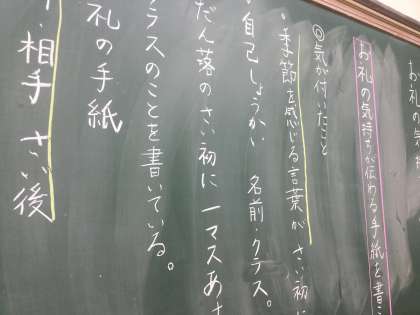 お礼の気
お礼の気持ちが伝わる手紙を書こ
◎気が付いたこと
・季節を感じる言葉が さい初に
・自己しょうかい 名前・クラス。
だん落のさい初に一マスあ
ラスのことを書いている。
礼の手紙
・相手 さい後